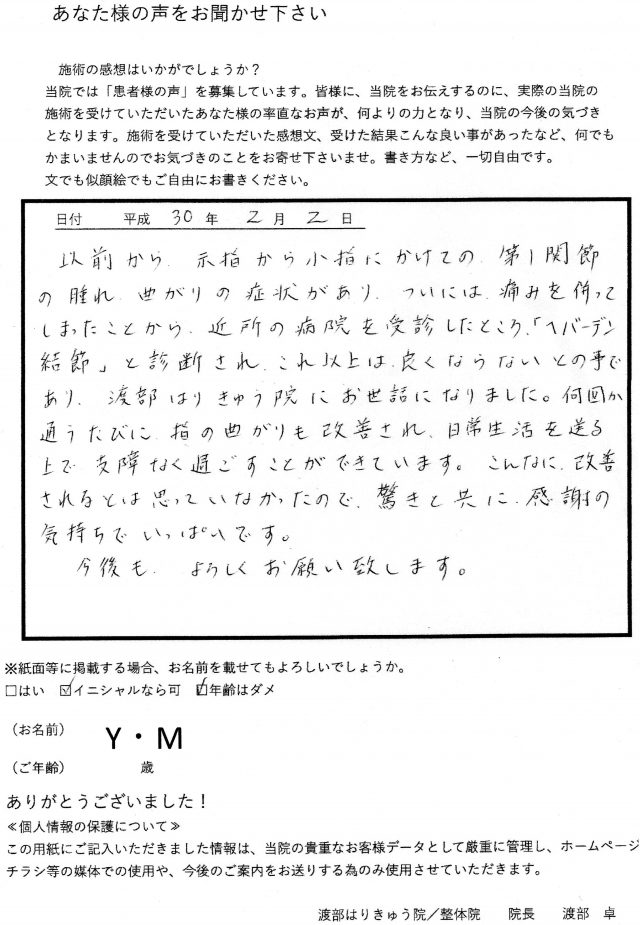 あなた様の声をお聞かせ下さい
施術の感想はいかがでしょうか？
当院では「患者様の声」を募集しています。皆様に、当院をお伝えするのに、実際の当院の
施術を受けていただいたあなた様の率直なお声が、何よりの力となり、当院の今後の気づき
となります。施術を受けていただいた感想文、受けた結果こんな良い事があったなど、何でも
かまいませんのでお気づきのことをお寄せ下さいませ。書き方など、一切自由です。
文でも似顔絵でもご自由にお書きください。
日付 平成 30 年 2 月 2 日
以前から、示指から小指にかけての、第1関節
の腫れ、曲がりの症状があり、ついには、痛みを伴って
しまったことから、近所の病院を受診したところ、「ヘバーデン
結節」と診断され、これ以上は、良くならないとの事で
あり、渡部はりきゅう院にお世話になりました。何回か
通うたびに、指の曲がりも改善され、日常生活を送る
上で、支障なく過ごすことができています。こんなに、改善
されるとは思っていなかったので、驚きと共に、感謝の
気持ちでいっぱいです。
今後も、よろしくお願い致します。
※紙面等に掲載する場合、お名前を載せてもよろしいでしょうか。
□はい ☑イニシャルなら可 ☑年齢はダメ
（お名前） Y・M
（ご年齢） 歳
ありがとうございました！
≪個人情報の保護について≫
この用紙にご記入いただきました情報は、当院の貴重なお客様データとして厳重に管理し、ホームページ
チラシ等の媒体での使用や、今後のご案内をお送りする為のみ使用させていただきます。
渡部はりきゅう院／整体院 院長 渡部 卓